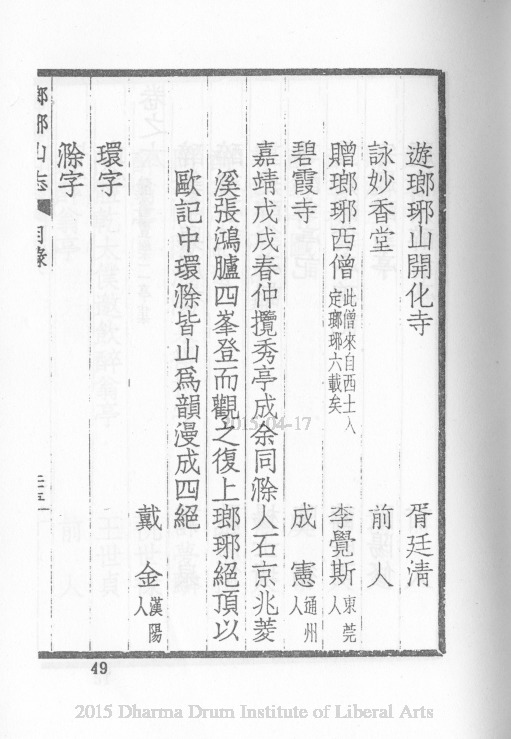 遊瑯琊山開化寺 胥廷清
詠妙香堂 前人
贈瑯琊西僧 此僧來自西土入定瑯琊六載矣 李覺斯 東莞人
碧霞寺 成憲 通州人
嘉靖戊戌春仲攬秀亭成余同滁人石京兆菱
溪張鴻臚四峯登而觀之復上瑯琊絕頂以
歐記中環滁皆山爲韻漫成四絕
戴金 漢陽人
環字
滁字
瑯琊山志 目錄 二五
49
2015-04-17
2015 Dharma Drum Institute of Liberal Arts